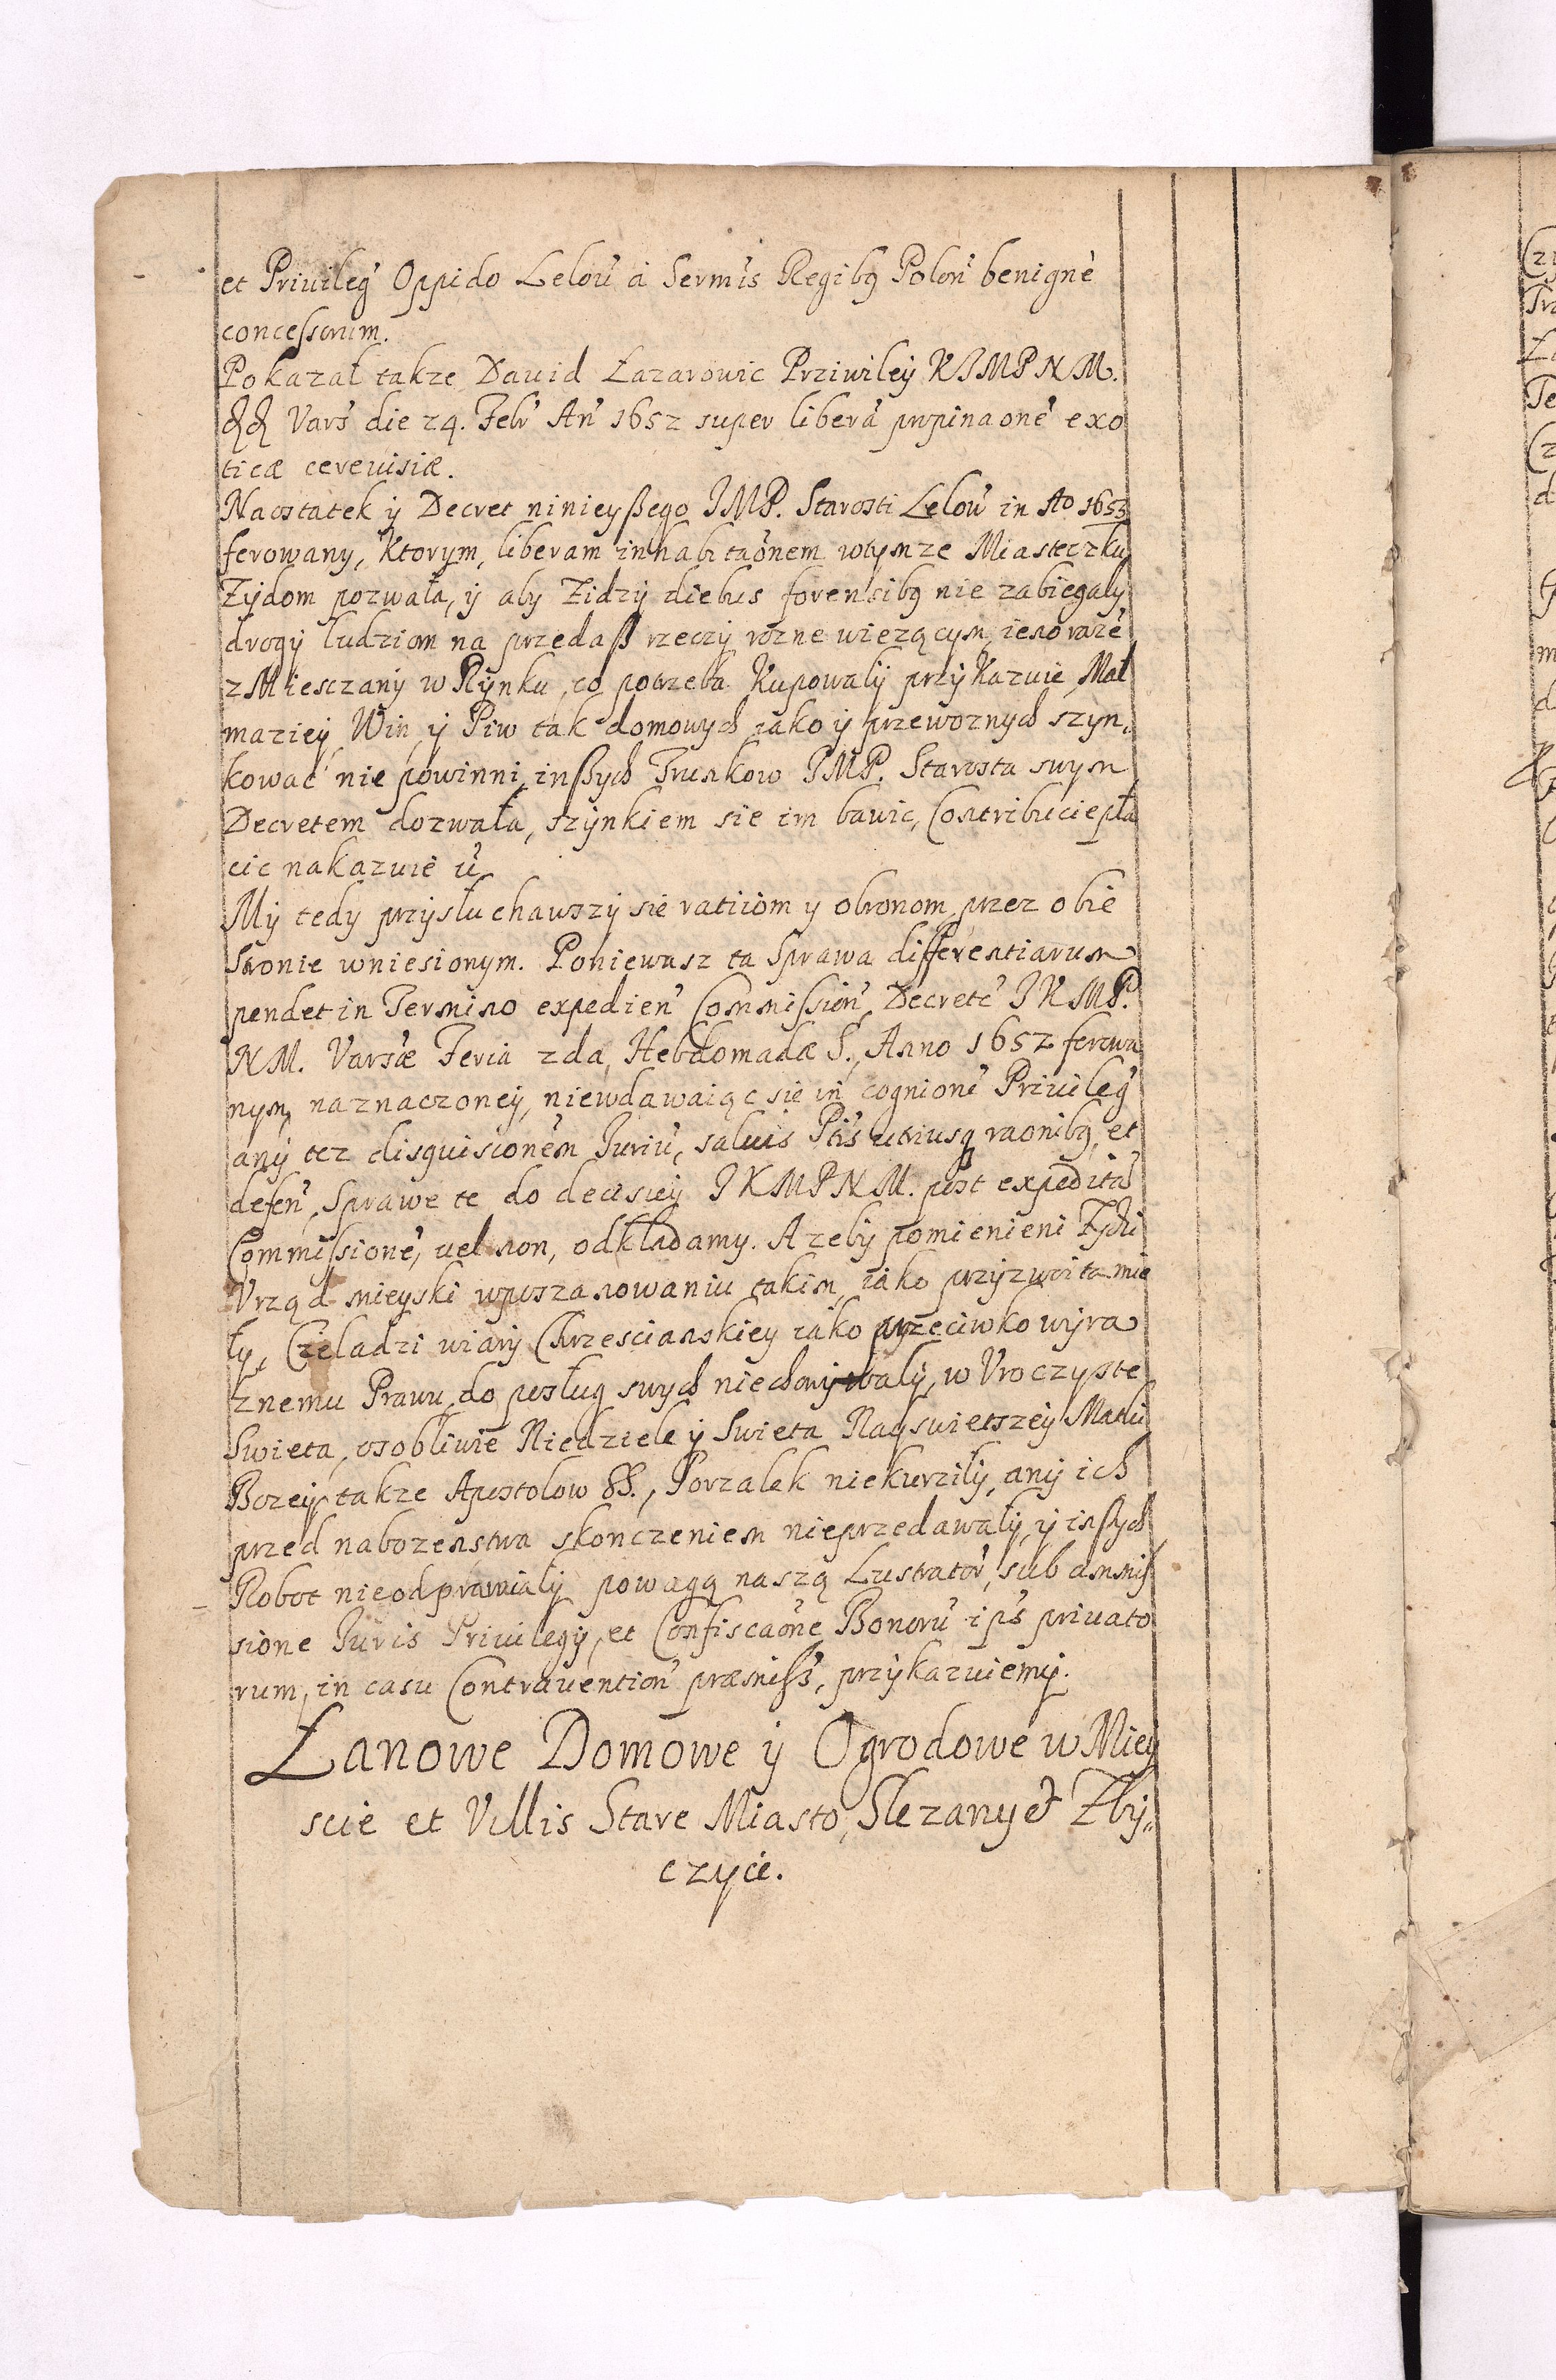 et Priuileg Oppido Lelou à Sermis Regibq Polon benignè
concessorum.
Pokazał takze Dauid Łazarowic Prziwileÿ KJMPNM.
dd Vars die 24. Febr An 1652 super liberā propinaonē exo
ticæ cereuisiæ.
Naostatek ÿ Decret ninieyßego JMP. Starosti Lelou in Ao 1653
ferowany, Ktorym, liberam inhabitaonem wtymze Miasteczku
Zÿdom pozwala, ÿ aby Zidzÿ diebus forensibq nie zabiegalÿ
drogÿ ludziom na przedaß rzeczÿ rozne wiezącym, ieno razē
z Miesczanÿ w Rÿnku, co potrzeba Kupowalÿ przÿkazuie, Mał
mazieÿ, Win, ÿ Piw tak domowych iako ÿ przewoznych szyn,
kowac nie powinni, inßych Trunkow JMP. Starosta swym
Decretem dozwala, szÿnkiem sie im bawic, Contribucie pła
cic nakazuie ÿ
Mÿ tedy przÿsłuchawszÿ sie ratiiom y obronom, przez obie
Stronie wniesionym. Poniewasz ta Sprawa differentiarum
pendet in Termino expedien Commission, Decretē JKMP.
NM. Varsæ Feria 2da, Hebdomadæ S., Anno 1652 ferowa
nym, naznaczoneÿ, niewdawaiąc sie in cognionē Priuileg
anÿ tez disquisionem Juriū, saluis Ptis utriusq raonibq, et
defen, Sprawe te do decisieÿ JKMPNM. post expeditā
Commissionē, uel non, odkładamy. A zebÿ pomienieni Zÿdzi
Vrząd mieyski wposzanowaniu takim, iako przÿzwoita mie
ly, Czeladzi wiarÿ Chrzescianskiey iako przeciwko wÿra
znemu Prawu, do posług swych niechowywalÿ, w Vroczyste
Swieta, osobliwie Niedziele ÿ Swieta Nayswietszeÿ Matki
Bozeÿ, takze Apostolow SS., Gorzalek niekurzilÿ, anÿ ich
przed nabozenstwa skonczeniem nieprzedawalÿ, ÿ inßych
Robot nieodprawialÿ powagą naszą Lustrator, sub amis
sione Juris Priuilegÿ, et Confiscaone Bonorū ips priuato
rum, in casu Contrauention præmiss, przÿkazuiemÿ.
Łanowe Domowe ÿ Ogrodowe w Miey
scie et Villis Stare Miasto, Slezany et Zbÿ,,
czyce.